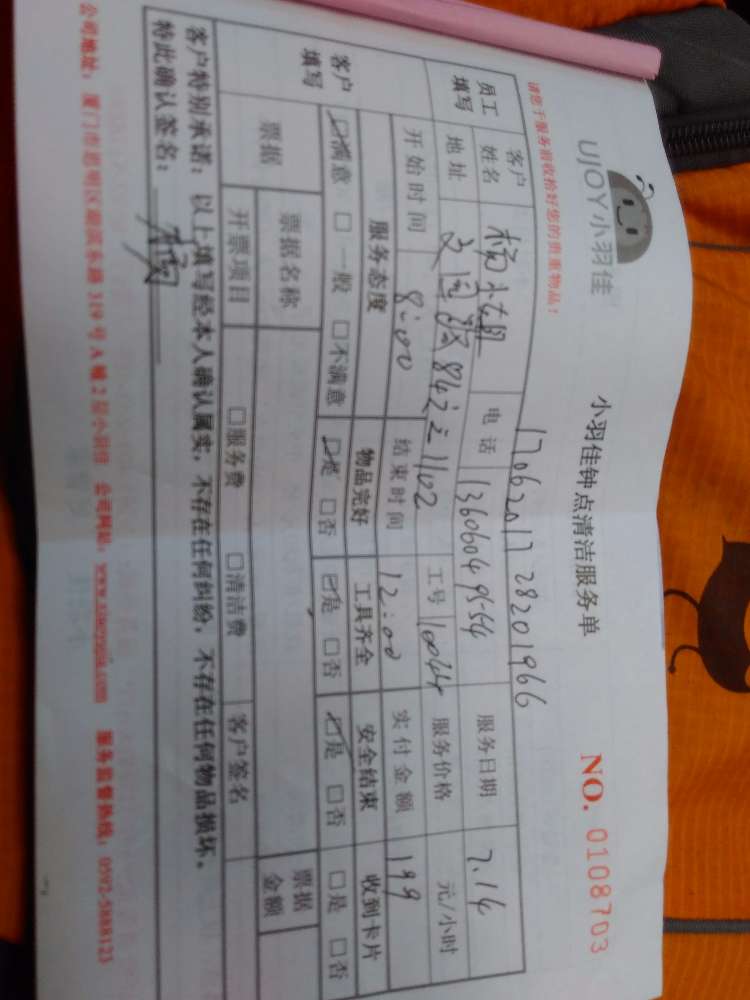 UJOY小羽佳
小羽佳钟点清洁服务单
NO. 0108703
请您于服务前收拾好您的贵重物品!
17062017 28201966
员工填写 客户姓名 杨小姐 电话 13606049554 服务日期 7.14
地址 文园路842之1102 工号 10044 服务价格 元/小时
开始时间 8:00 结束时间 12:00 实付金额 199
客户填写 服务态度 物品完好 工具齐全 安全结束 收到卡片
☑满意 □一般 □不满意 ☑是 □否 ☑是 □否 ☑是 □否 □是 □否
票据 票据名称 票据金额
开票项目 □服务费 □清洁费 客户签名
客户特别承诺:以上填写经本人确认属实,不存在任何纠纷,不存在任何物品损坏。
特此确认签名:
公司地址:厦门市思明区湖滨东路319号A幢2层小羽佳 公司网站:www.xiaoyujia.com 服务监督热线:0592-5888123